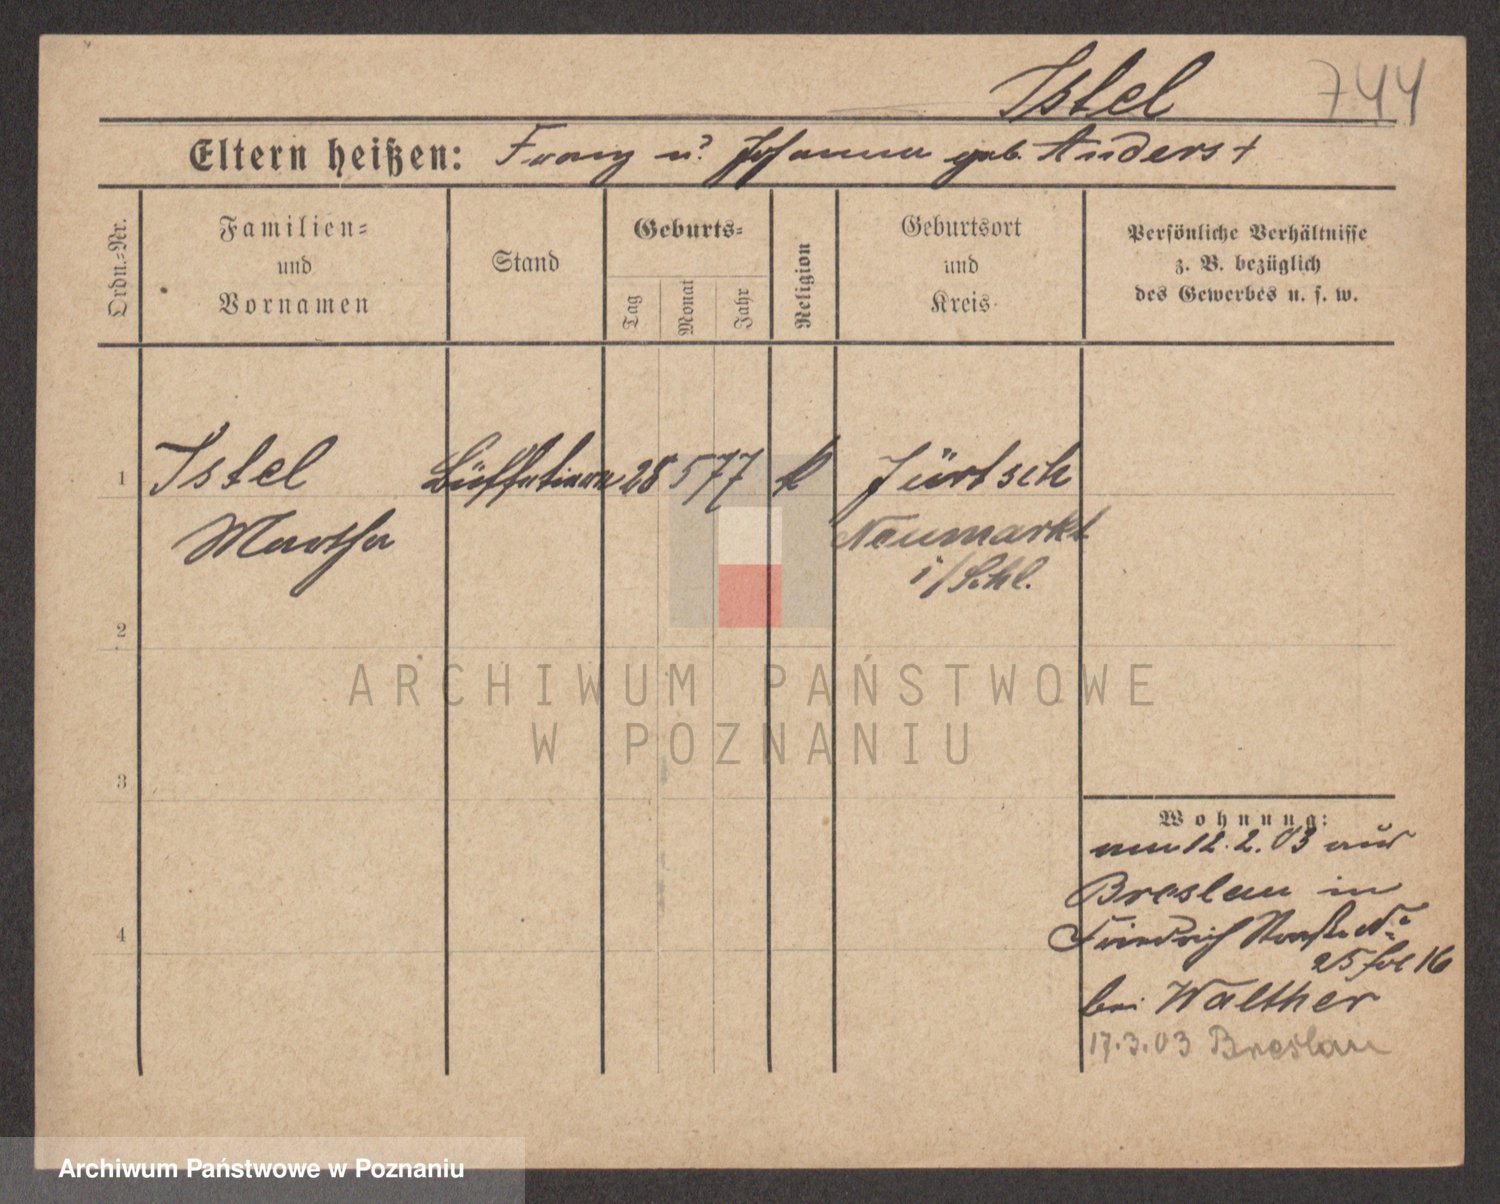 Istel 744
Eltern heißen: Franz u. Johanna geb. Anders +
Ordn.=Nr.
Familien=
und
Vornamen
Stand
Geburts=
Tag
Monat
Jahr
Religion
Geburtsort
und
Kreis
Persönliche Verhältnisse
z. B. bezüglich
des Gewerbes u. s. w.
1 Istel 28 5 77 k Jürtsch
Martha Neumarkt
i/Schl.
2
3
4
Wohnung:
am 12.2.03 aus
Breslau in
Friedrich Straße No
25 fol 16
bei Walther
17.3.03 Breslau
ARCHIWUM PAŃSTWOWE
W POZNANIU
Archiwum Państwowe w Poznaniu